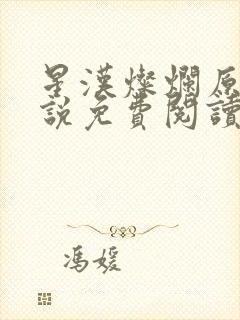 星漢燦爛原
說免費閱讀
馮媛